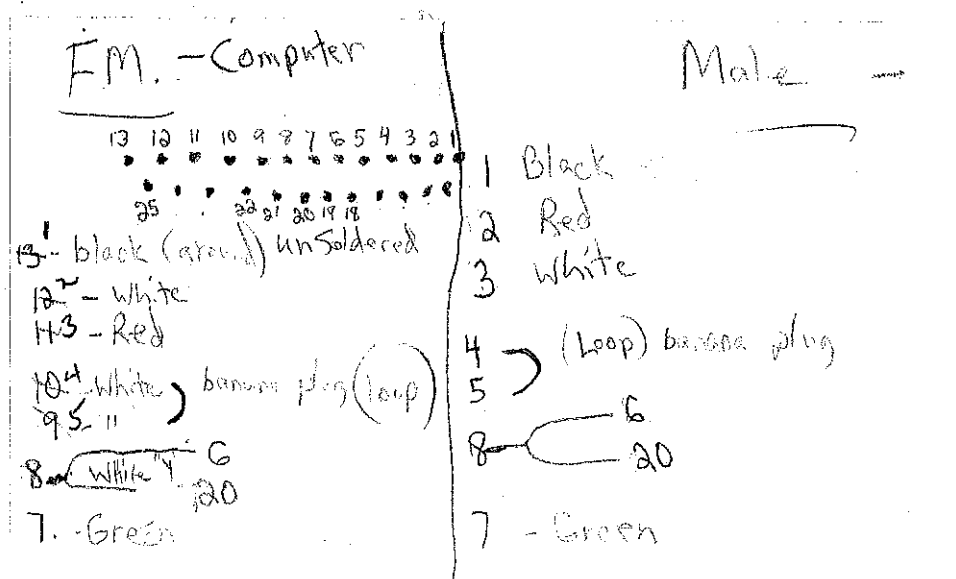 FM. - Computer
13 12 11 10 9 8 7 6 5 4 3 2 1
25 22 21 20 19 18
1 - black (ground) unsoldered
2 - White
3 - Red
4 - White
5 - " ) banana plug (loop)
8 White "Y" 6
20
7. - Green
Male -
1 Black
2 Red
3 White
4
5 ) (Loop) banana plug
8 6
20
7 - Green